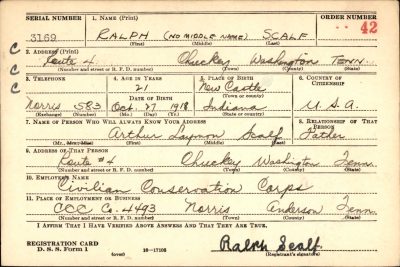 SERIAL NUMBER 1. NAME (Print) ORDER NUMBER
3169 RALPH (NO MIDDLE NAME) SCALF 42
(First) (Middle) (Last)
2. ADDRESS (Print)
Route 4. Chuckey Washington Tenn.
(Number and street or R. F. D. number) (Town) (County) (State)
3. TELEPHONE 4. AGE IN YEARS 5. PLACE OF BIRTH 6. COUNTRY OF CITIZENSHIP
21 New Castle
DATE OF BIRTH (Town or county)
Norris 583 Oct. 27 1918 Indiana U.S.A.
(Exchange) (Number) (Mo.) (Day) (Yr.) (State or country)
7. NAME OF PERSON WHO WILL ALWAYS KNOW YOUR ADDRESS 8. RELATIONSHIP OF THAT PERSON
Arthur Laymon Scalf Father
(Mr., Mrs., Miss) (First) (Middle) (Last)
9. ADDRESS OF THAT PERSON
Route #4 Chuckey Washington Tenn.
(Number and street or R. F. D. number) (Town) (County) (State)
10. EMPLOYER'S NAME
Civilian Conservation Corps
11. PLACE OF EMPLOYMENT OR BUSINESS
CCC Co. 4493 Norris Anderson Tenn.
(Number and street or R. F. D. number) (Town) (County) (State)
I AFFIRM THAT I HAVE VERIFIED ABOVE ANSWERS AND THAT THEY ARE TRUE.
REGISTRATION CARD
D. S. S. Form 1 (over) 16-17105 Ralph Scalf
(Registrant's signature)